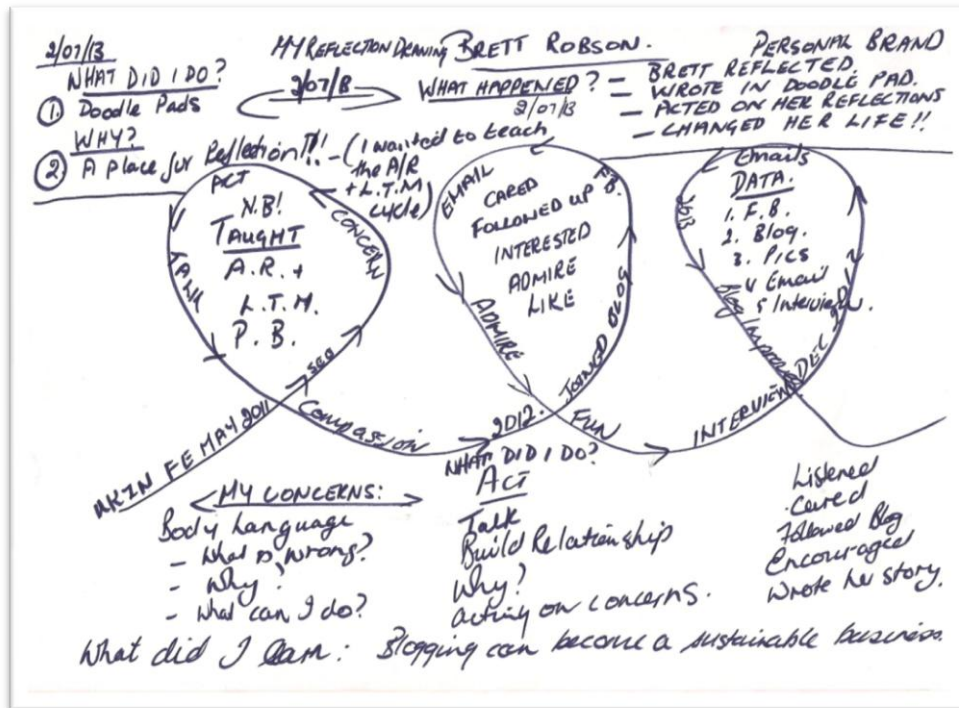 2/07/13
MY REFLECTION DRAWING BRETT ROBSON.
PERSONAL BRAND
WHAT DID I DO?
① Doodle Pads
WHY?
② A Place for Reflection!!! - (I wanted to teach
the A/R
+ L.T.M
cycle)
2/07/13
WHAT HAPPENED?
2/07/13
- BRETT REFLECTED.
- WROTE IN DOODLE PAD.
- ACTED ON HER REFLECTIONS
- CHANGED HER LIFE!!
ACT
N.B!
TAUGHT
A.R. +
L.T.M.
P.B.
CONCERN
TALK
SEQ
UKZN FE MAY 2011
COMPASSION
EMAIL
CARED
FOLLOWED UP
INTERESTED
ADMIRE
LIKE
F.B.
ADMIRE
2012.
JOINED BLOG
FUN
Emails
DATA.
1. F.B.
2. Blog.
3. Pics
4 Email
5 Interview.
2013
Blog Improved
INTERVIEW DEC
MY CONCERNS:
Body Language
- What is wrong?
- Why?
- What can I do?
WHAT DID I DO?
ACT
Talk
Build Relationship
Why?
acting on concerns.
Listened
Cared
Followed Blog
Encouraged
Wrote her story.
What did I learn: Blogging can become a sustainable business.